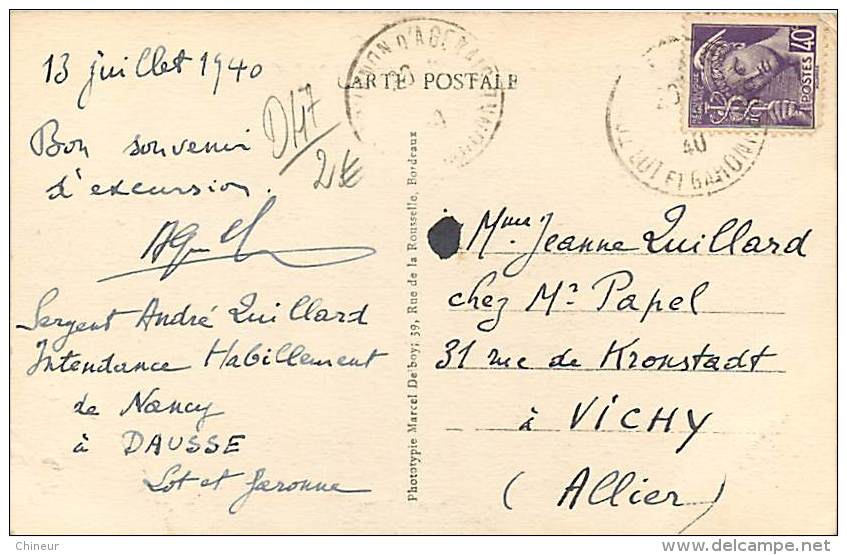 13 juillet 1940
Bon souvenir
d'excursion.
Sergent André Quillard
Intendance Habillement
de Nancy
à DAUSSE
Lot et Garonne
D/47
2€
CARTE POSTALE
Phototypie Marcel Delboy; 39, Rue de la Rousselle, Bordeaux
LOT ET GARONNE
40
40
POSTES
Mme Jeanne Quillard
chez Mr Papel
31 rue de Kronstadt
à VICHY
(Allier)
Chineur
delcampe.net